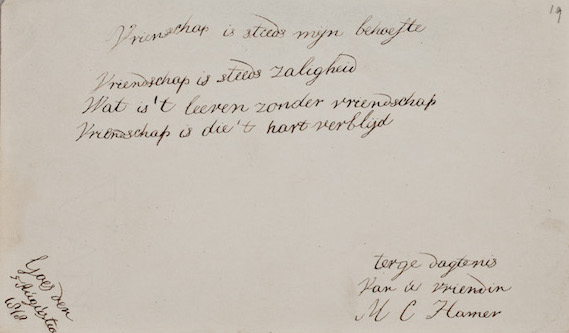 19
Vrienschap is steeds mijn behoefte
Vriendschap is steeds zaligheid
Wat is't leeven zonder vriendschap
Vriendschap is die't hart verblijd
Goes den
5 Augustus
terge dagtenis
Van uw vriendin
M C Hamer